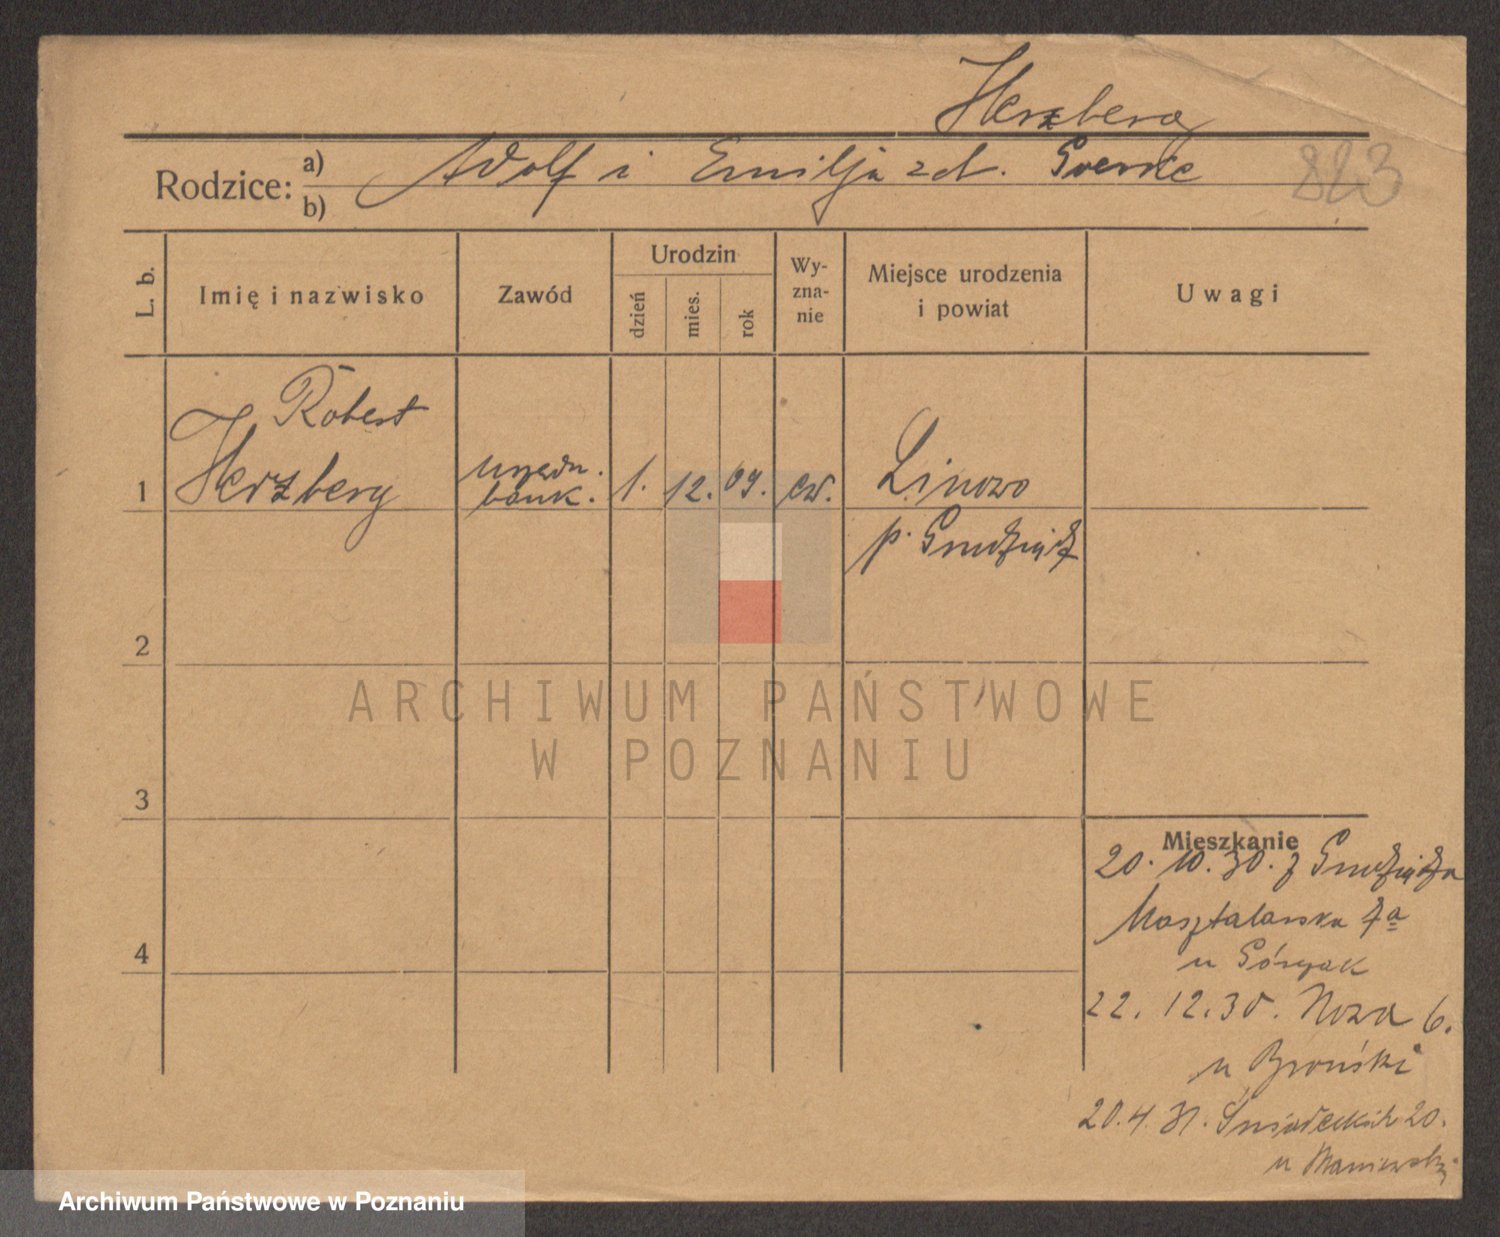 Herzberg
Rodzice: a) b) Adolf i Emilja zd.
823
L. b. Imię i nazwisko Zawód Urodzin dzień mies. rok Wy-zna-nie Miejsce urodzenia i powiat Uwagi
Robert
1 Herzberg urzędn. bank. 1. 12. 09. ew. Linowo
p. Grudziądz
2
ARCHIWUM PAŃSTWOWE
W POZNANIU
3
Mieszkanie
20. 10. 30. z Grudziądza
Masztalarska 7a
u
22. 12. 30. 6.
u Broński
20. 4. 31. Śniadeckich 20.
u
4
Archiwum Państwowe w Poznaniu